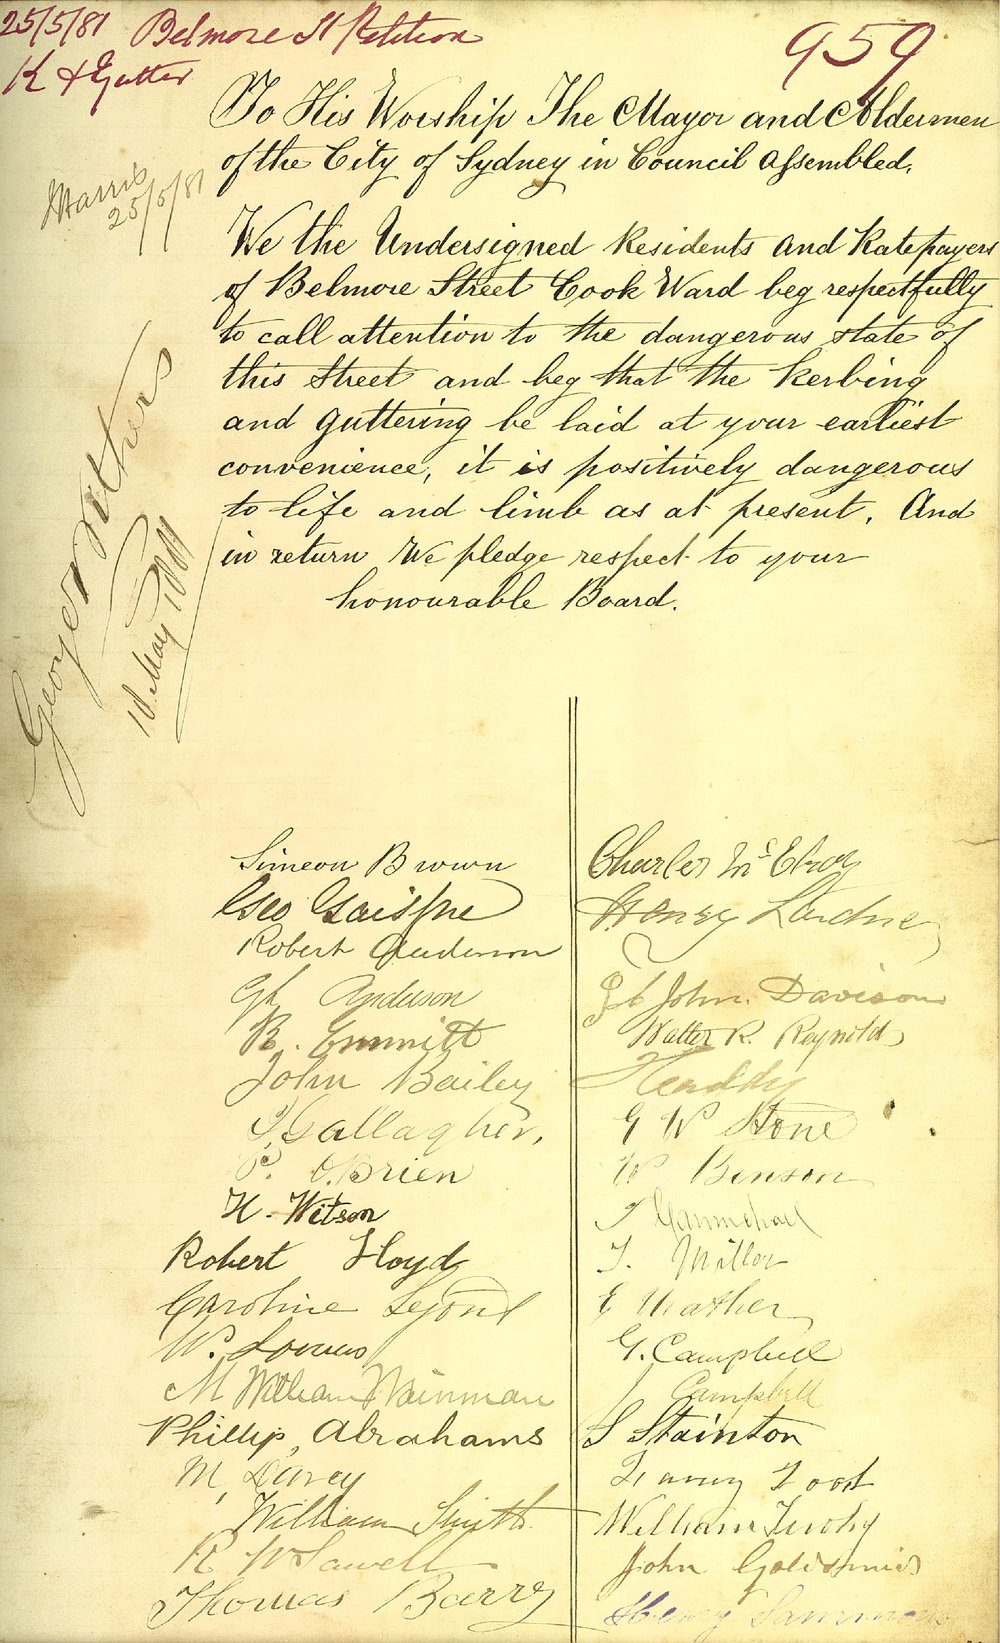 25/5/81 Belmore St Petition
K & Gutter
959
To His Worship The Mayor and Aldermen
of the City of Sydney in Council assembled.
Harris
25/5/81
We the Undersigned Residents and Ratepayers
of Belmore Street Cook Ward beg respectfully
to call attention to the dangerous state of
this Street and beg that the Kerbing
and guttering be laid at your earliest
convenience, it is positively dangerous
to life and limb as at present. And
in return We pledge respect to your
honourable Board.
George Withers
10 May 1881
Simeon Brown
Geo
Robert Anderson
Anderson
R. Emmitt
John Bailey
Gallagher,
P. O.Brien
H. Witson
Robert Lloyd
Caroline
W.
M William Wainman
Phillip, Abrahams
M, Darcy
William Smith
R W Sawell
Thomas Barry
Charles McElroy
Henry Lardner
John. Davison
Walter R. Reynolds
G W Stone
W Benson
T Carmichael
T. Miller
E Mather
G. Campbell
J Campbell
S Stainton
Foot
William Tuohy
John Goldsmid
Henry